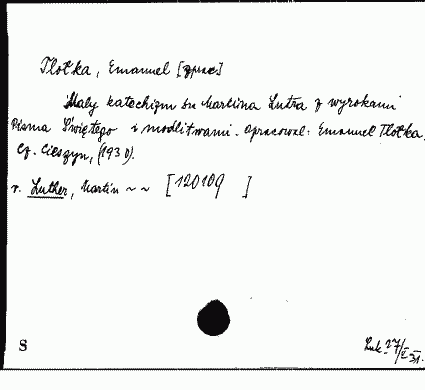 Tlołka, Emanuel [oprac.]
Mały katechizm Dra Martina Lutra z wyrokami
Pisma Świętego i modlitwami. Opracował: Emanuel Tlołka.
Cz. Cieszyn, (1930).
v. Luther, Martin ~ ~ [120109 ]
S
27/ 31.